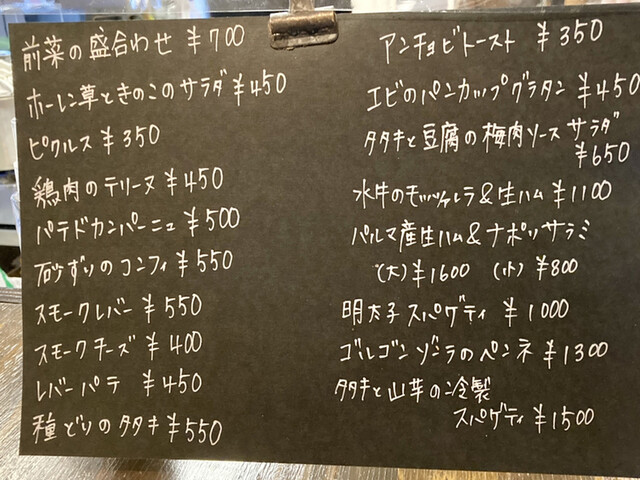 前菜の盛合わせ ¥700
ホーレン草ときのこのサラダ ¥450
ピクルス ¥350
鶏肉のテリーヌ ¥450
パテドカンパーニュ ¥500
砂ずりのコンフィ ¥550
スモークレバー ¥550
スモークチーズ ¥400
レバーパテ ¥450
種どりのタタキ ¥550
アンチョビトースト ¥350
エビのパンカップグラタン ¥450
タタキと豆腐の梅肉ソース サラダ
¥650
水牛のモッツァレラ&生ハム ¥1100
パルマ産生ハム&ナポリサラミ
(大) ¥1600 (小) ¥800
明太子スパゲティ ¥1000
ゴルゴンゾラのペンネ ¥1300
タタキと山芋の冷製
スパゲティ ¥1500